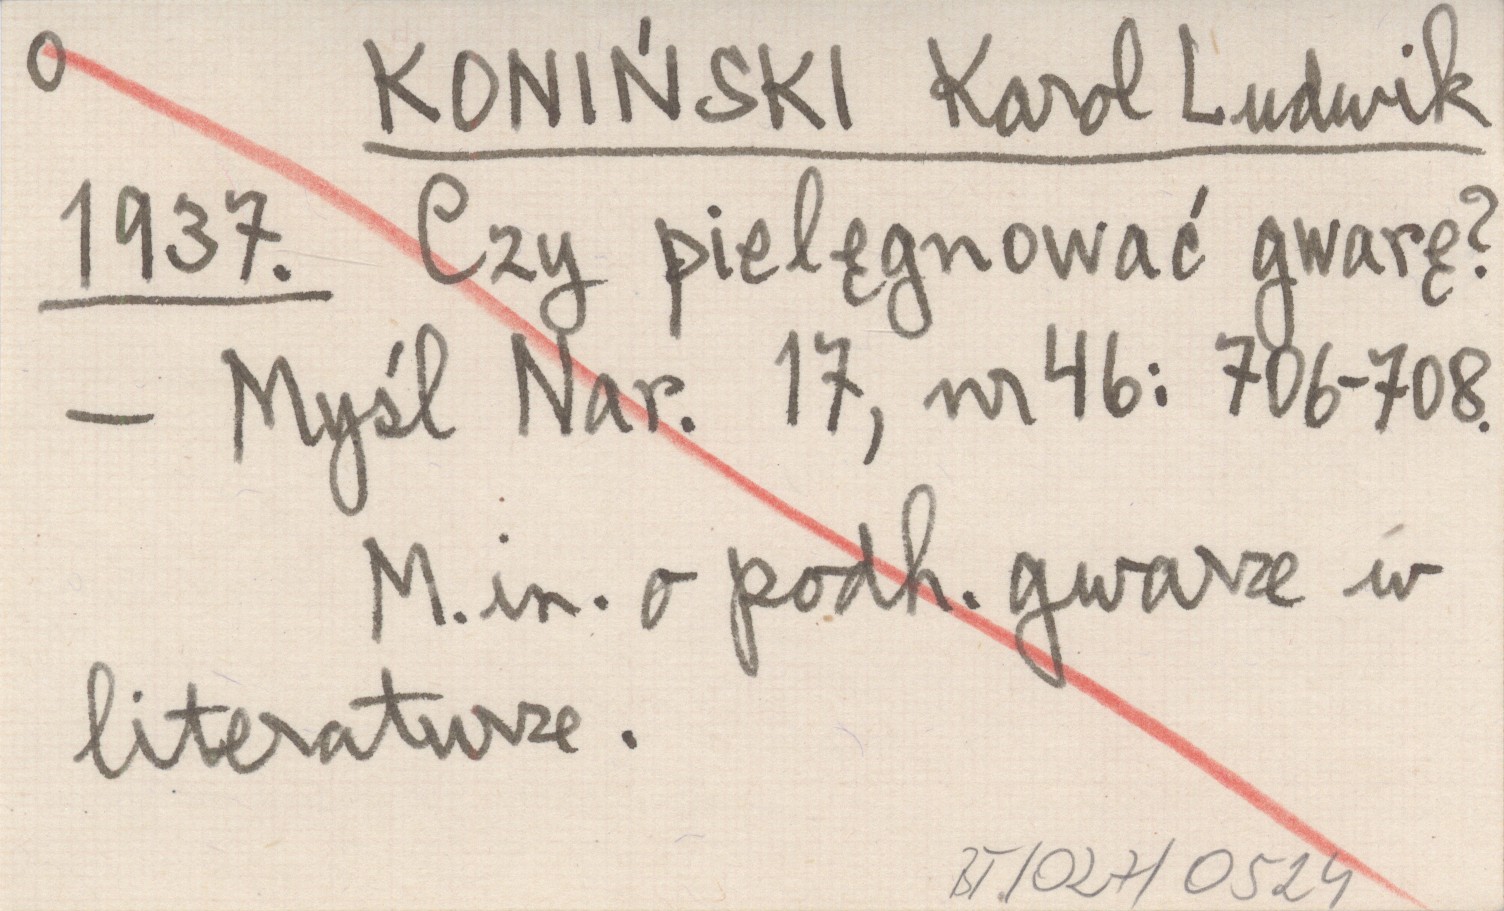 O KONIŃSKI Karol Ludwik
1937. Czy pielęgnować gwarę?
– Myśl Nar. 17, nr 46: 706-708.
M.in. o podh. gwarze w
literaturze.
BT./027/ 0524